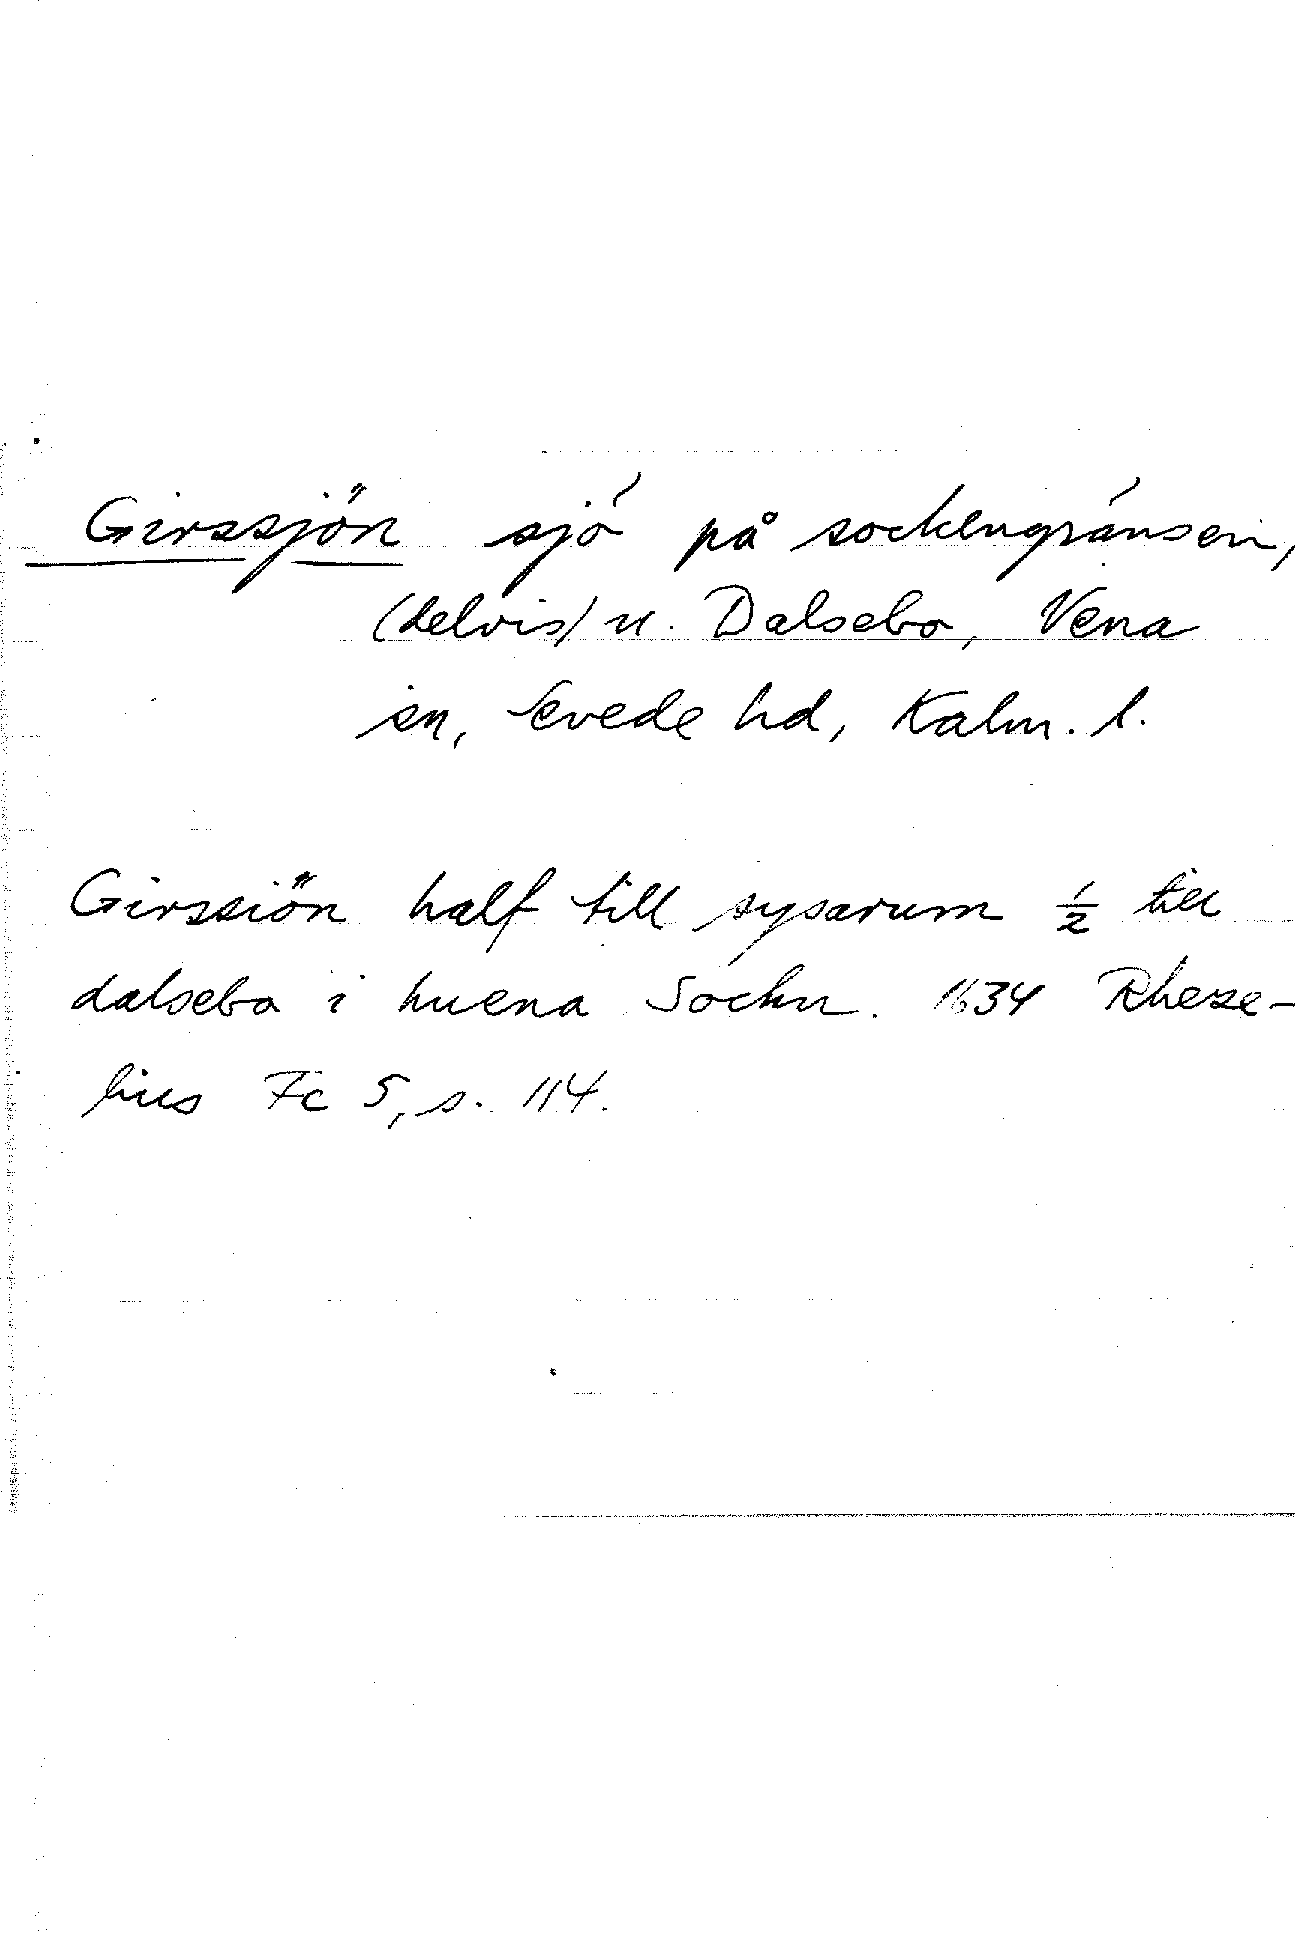 Girssjön sjö på sockengränsen,
(delvis) u. Dalsebo, Vena
sn, Sevede hd, Kalm. l.
Girssiön half till sysarum ½ till
dalsebo i huena Sochn. 1634 Rheze-
lius Fc 5, s. 114.